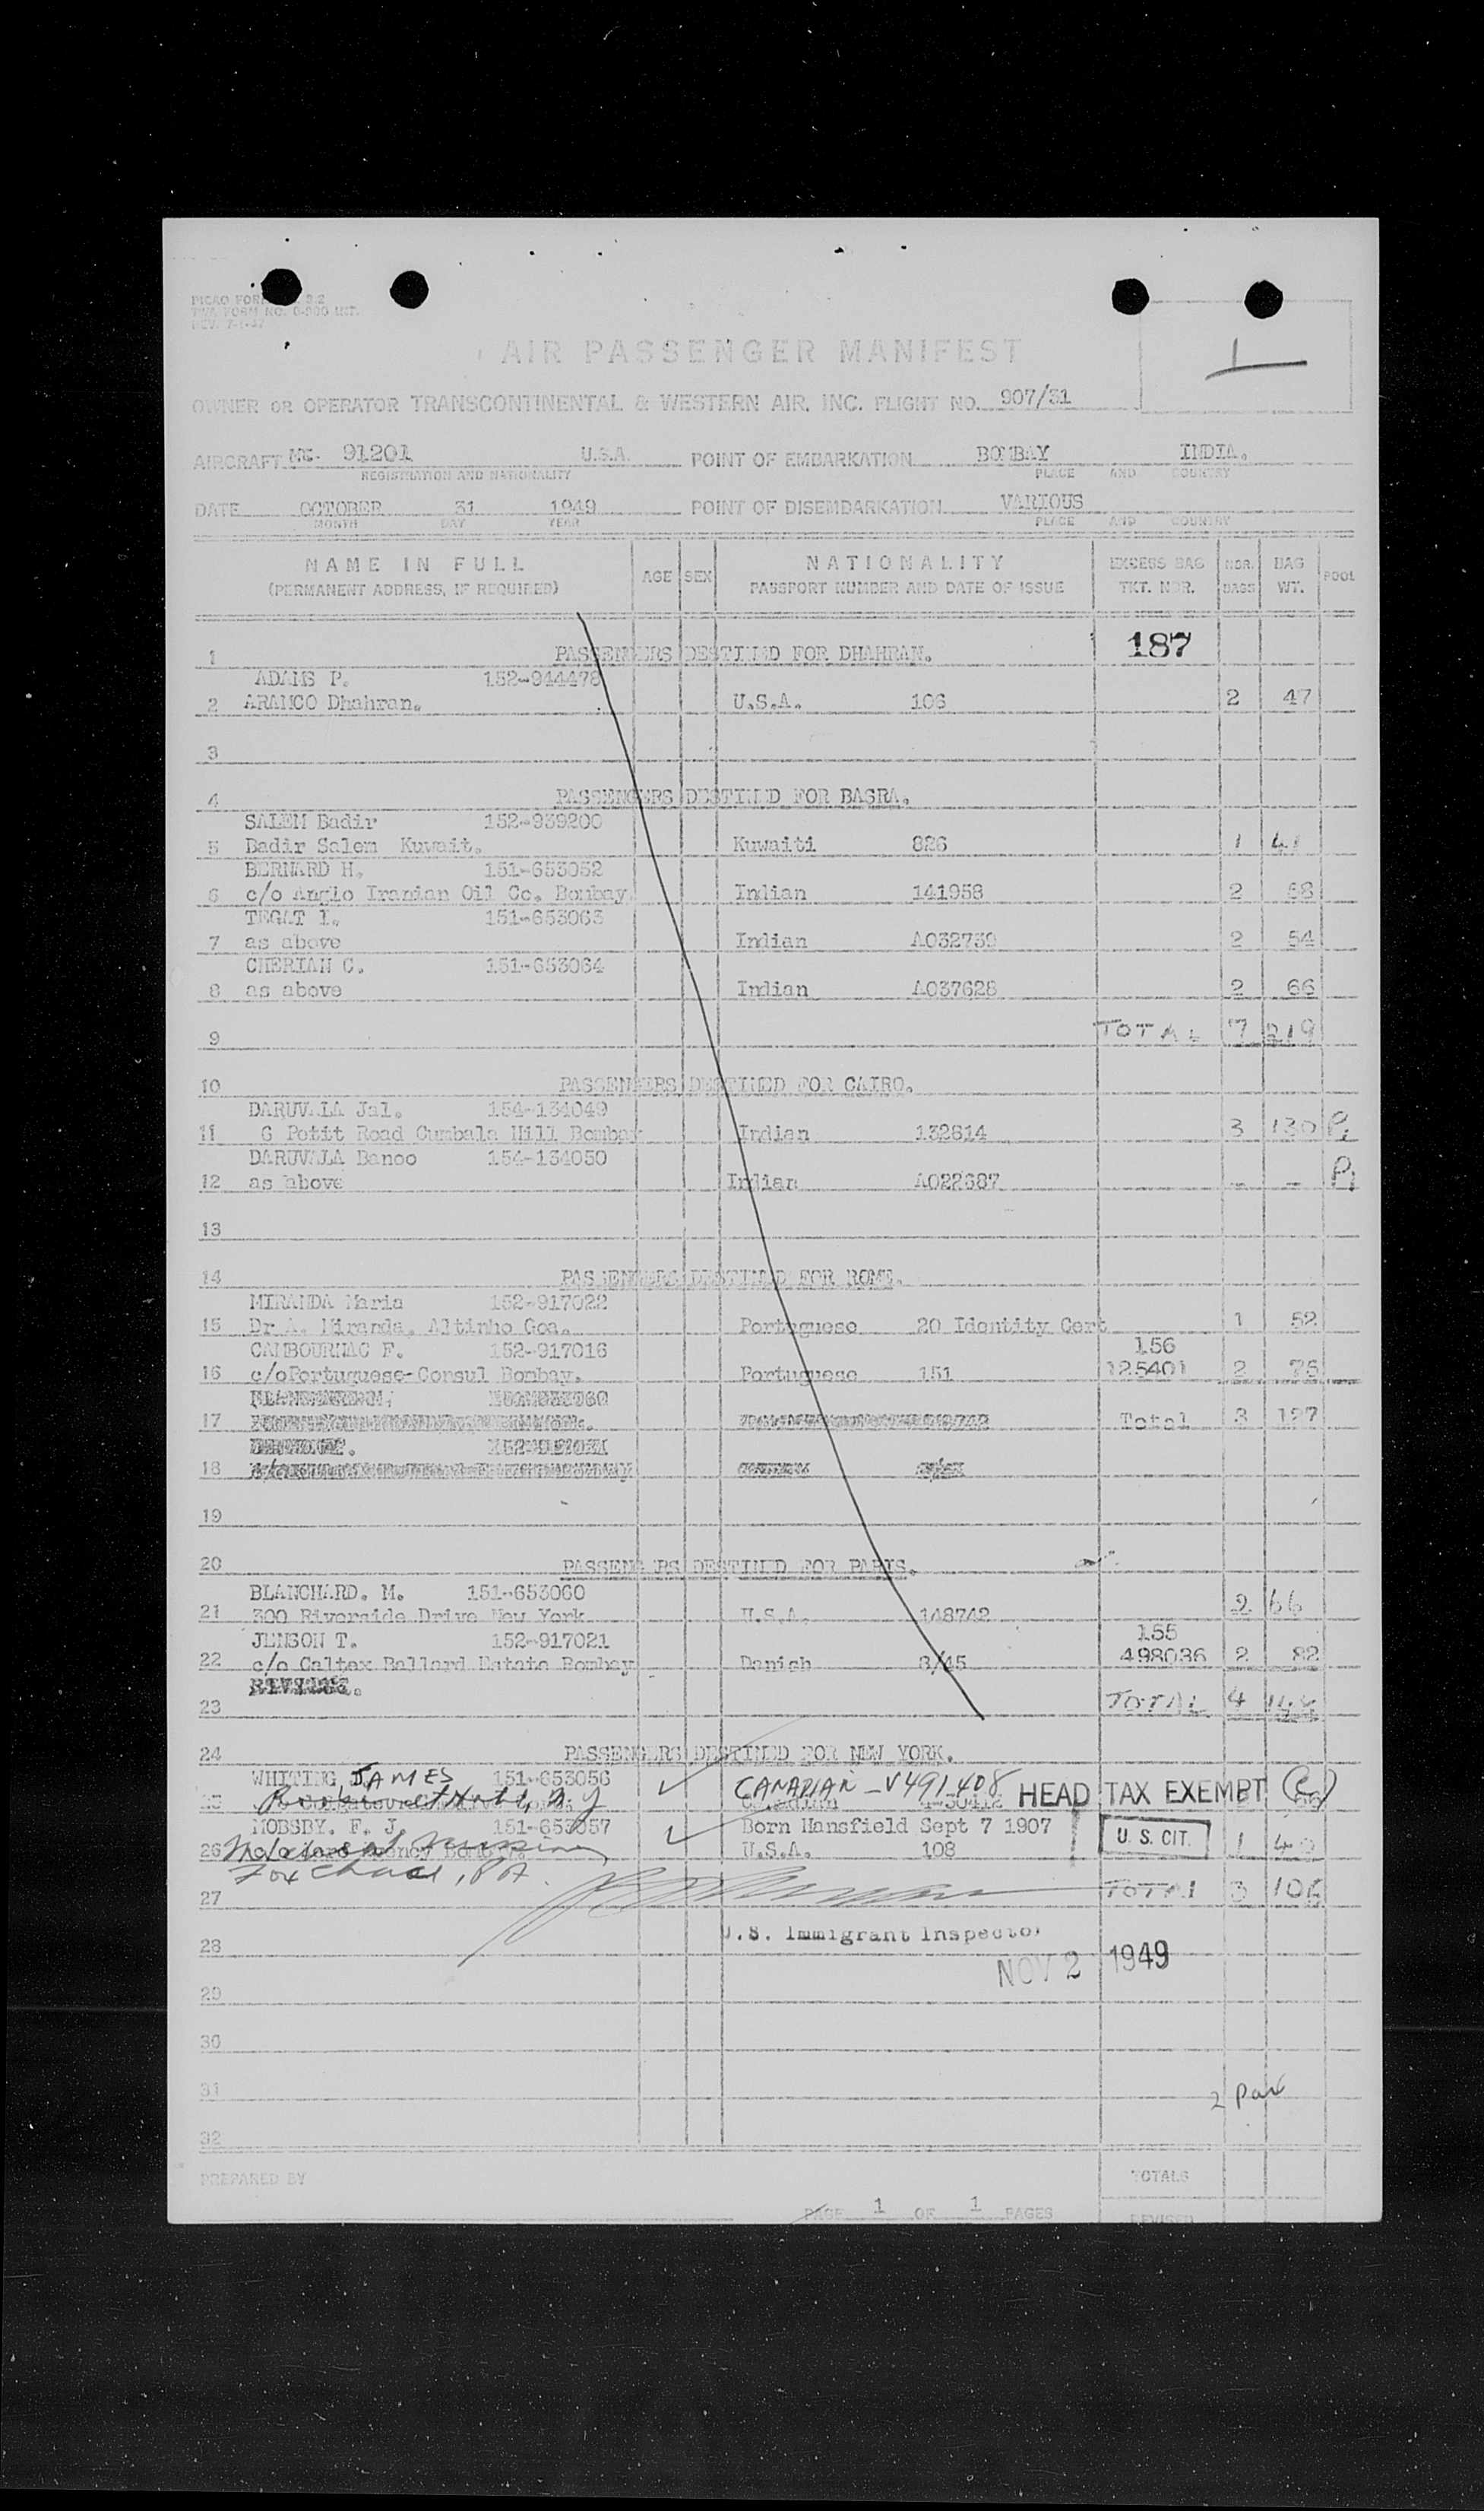 TWA FORM NO. 0-900 INT.
AIR PASSENGER MANIFEST
1
OWNER OR OPERATOR TRANSCONTINENTAL & WESTERN AIR, INC. FLIGHT NO. 907/31
AIRCRAFT 91201 U.S.A. POINT OF EMBARKATION BOMBAY INDIA.
REGISTRATION AND NATIONALITY PLACE AND COUNTRY
DATE OCTOBER 31 1949 POINT OF DISEMBARKATION VARIOUS
MONTH DAY YEAR PLACE AND COUNTRY
NAME IN FULL AGE SEX NATIONALITY EXCESS BAG NBR. BAG POOL
(PERMANENT ADDRESS, IF REQUIRED) PASSPORT NUMBER AND DATE OF ISSUE TKT. NBR. BAGS WT.
1 PASSENGERS DESTINED FOR DHAHRAN. 187
ADAMS P. 152-944478
2 ARAMCO Dhahran. U.S.A. 106 2 47
3
4 PASSENGERS DESTINED FOR BASRA.
SALEM Badir 152-939200
5 Badir Salem Kuwait. Kuwaiti 826 1 41
BERNARD H. 151-653052
6 c/o Anglo Iranian Oil Co. Bombay Indian 141958 2 58
TEGAT I. 151-653063
7 as above Indian A032739 2 54
CHERIAN C. 151-653064
8 as above Indian A037628 2 66
9 TOTAL 7 219
10 PASSENGERS DESTINED FOR CAIRO.
DARUVALA Jal. 154-134049
11 6 Petit Road Cumbala Hill Bombay Indian 132614 3 130 P1
DARUVALA Banoo 154-134050
12 as above Indian A022687 - - P1
13
14 PASSENGERS DESTINED FOR ROME.
MIRANDA Maria 152-917022
15 Dr A. Miranda, Altinho Goa. Portuguese 20 Identity Cert 1 52
CAMBOURNAC F. 152-917016 156
16 c/oPortuguese-Consul Bombay. Portuguese 151 125401 2 75
17 Total 3 127
18
19
20 PASSENGERS DESTINED FOR PARIS.
BLANCHARD. M. 151-653060
21 300 Riverside Drive New York U.S.A. 148742 2 66
JENSON T. 152-917021 155
22 c/o Caltex Ballard Estate Bombay Danish 8/45 498036 2 82
23 TOTAL 4 148
24 PASSENGERS DESTINED FOR NEW YORK.
WHITING, JAMES 151-653056 CANADIAN - V491408 HEAD TAX EXEMPT
25
MOBSBY. F. J. 151-653057 Born Mansfield Sept 7 1907 U. S. CIT.
26 U.S.A. 108 1 40
Fox Chase, PA.
27 TOTAL 3 106
28 U.S. Immigrant Inspector
NOV 2 1949
29
30
31 2 Pax
32
PREPARED BY TOTALS
PAGE 1 OF 1 PAGES REVISED